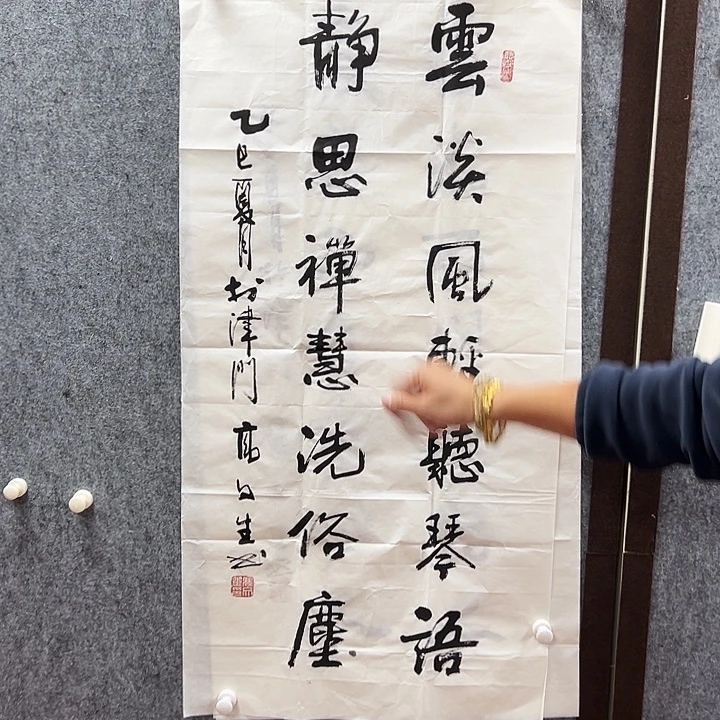 雲淡風輕聽琴語
靜思禪慧洗俗塵
乙巳夏月於津門 高 生書